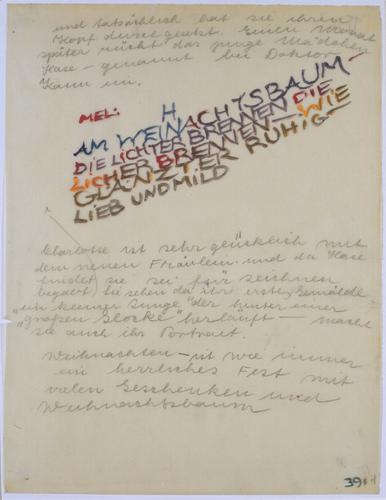 und tatsächlich hat sie ihren
Kopf durchgesetzt. Einen Monat
später rückt das junge Mädchen
Hase – genannt bei Doktor
Kann ein.
MEL: H
AM WEINACHTSBAUM
DIE LICHTER BRENNEN DIE
LICHER BBRENNEN — WIE
GLÄNZTER RUHIG —
LIEB UND MILD
Charlotte ist sehr glücklich mit
dem neuen Fräulein und da Hase
findet sie sei für zeichnen
begabt, Sie sehen da ihr erstes Gemälde
"ein kleiner Junge" der hinter einer
"großen Glocke" herläuft — macht
sie auch ihr Portrait.
Weihnachten – ist wie immer
ein herrliches Fest mit
vielen Geschenken und
Weihnachtsbaum
39